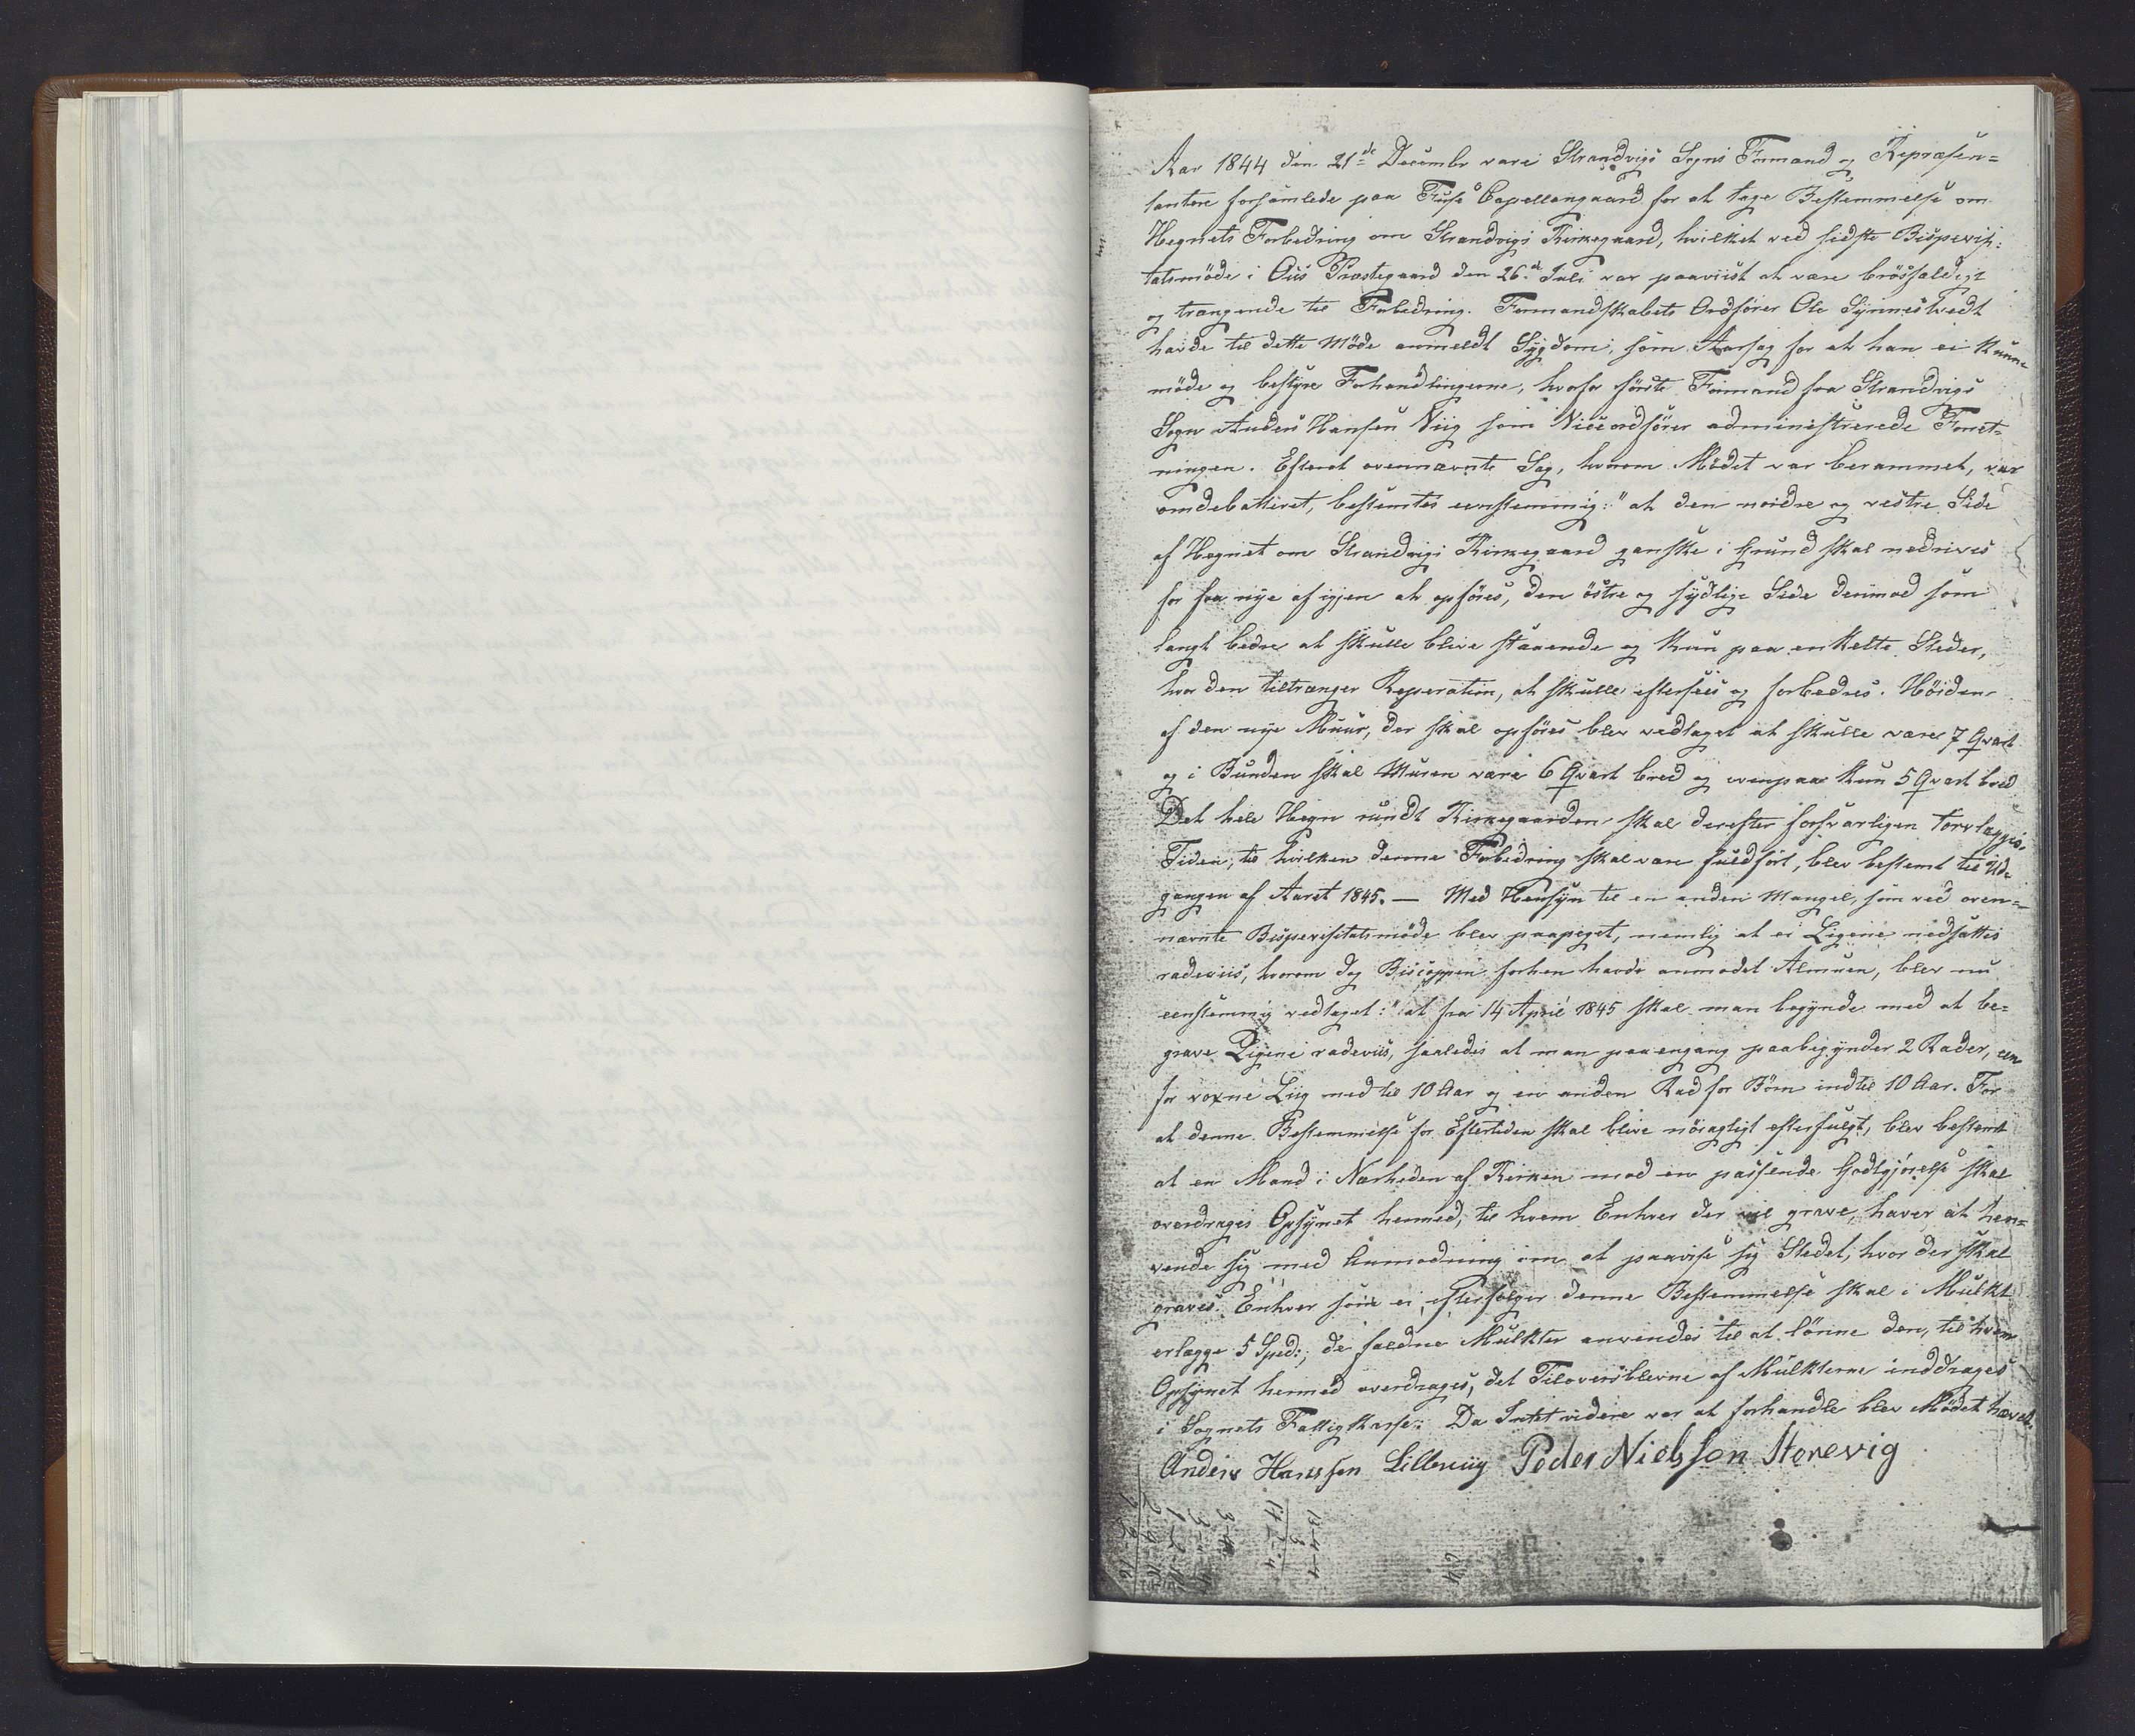 Aar 1844 den 21de Decembr vare Strandvigs Sogns Formænd og Repræsen=
tantere forsamlede paa Fuse Capellangaard for at tage Bestemmelse om
Hegnets Forbedring om Strandvigs Kirkegaard, hvilket ved sidste Bispevisi=
tatsmöde i Ous Præstegaard den 26de Juli var paaviist at være brösfældigt
og trængende til Forbedring. Formandskabets Ordförer Ole Synnestvedt
havde til dette Möde anmeldt Sygdom, som Aarsag for at han ei kunne
möde og bestyre Forhandlingerne, hvorfor förste Formand fra Strandvigs
Sogn Anders Hansen Viig som Viceordförer administrerede Forret=
ningen. Efterat ovennævnte Sag, hvorom Mödet var berammet, var
omdebatteret, bestemtes eenstemmig: "at den nordre og vestre Side
af Hegnet om Strandvigs Kirkegaard ganske i Grund skal nedrives
for fra nye af igjen at opföres, den östre og sydlige Side derimod som
langt bedre at skulle blive staaende og kun paa enkelte Steder,
hvor den tiltrænger Reperation, at skulle eftersees og forbedres. Höiden
af den nye Muur, der skal opföres blev vedtaget at skulle være 7 Qvart
og i Bunden skal Muren være 6 Qvart bred og ovenpaa kun 5 Qvart bred
Det hele Hegn rundt Kirkegaarden skal derefter forsvarligen torvlægges.
Tiden, til hvilken denne Forbedring skal være fuldfört, blev bestemt til Ud=
gangen af Aaret 1845. — Med Hensyn til en anden Mangel, som ved oven=
nævnte Bispevisitatsmöde blev paapeget, nemlig at ei Ligene nedsættes
radeviis, hvorom dog Biscoppen forhen havde anmodet Almuen, blev nu
eenstemmig vedtaget: "at fra 14 April 1845 skal man begynde med at be=
grave Ligene radeviis, saaledes at man paa engang paabegynder 2 Rader, een
for voxne Liig ned til 10 Aar og en anden Rad for Börn indtil 10 Aar. For
at denne Bestemmelse for Eftertiden skal blive nöiagtigt efterfulgt, blev bestemt
at en Mand i Nærheden af Kirken mod en passende Godtgjörelse skal
overdrages Opsynet hermed, til hvem Enhver der vil grave, haver at hen=
vende sig med Anmodning om at paavise sig Stedet, hvor der skal
graves. Enhver som ei efterfölger denne Bestemmelse skal i Mulkt
erlægge 5 Spd:, de faldne Mulkter anvendes til at lönne den, til hvem
Opsynet hermed overdrages, det Tiloversblevne af Mulkterne inddrages
i Sognets Fattigkasse. Da Intet videre var at forhandle blev Mödet hævet.
Anders Hanssen Lilleviig Peder Nielsson Storevig
13-4-4
3
14-2-4
64